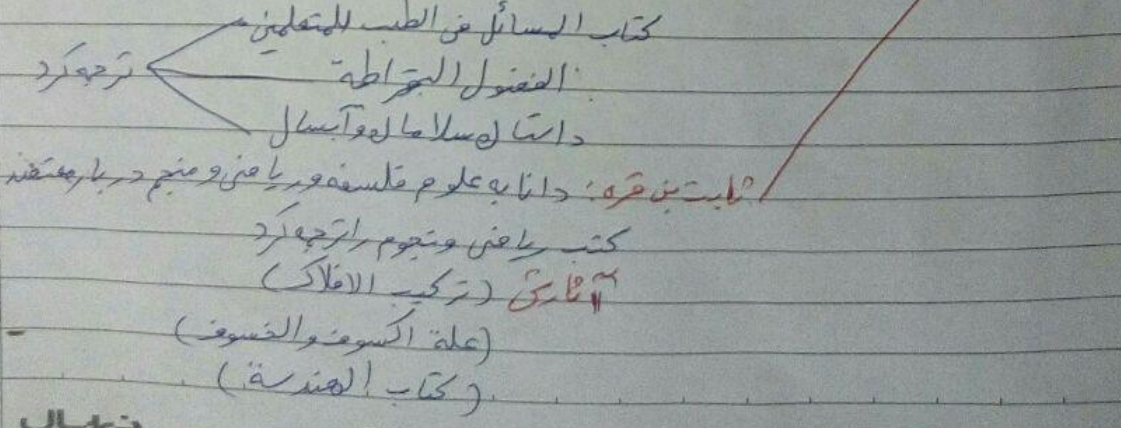 کتاب المسائل فی الطب للمتعلمین
الفصول البقراطة
ترجمه کرد
داستان سلامان و آبسال
ثابت بن قره: دانا به علوم فلسفه و ریاضی و منجم دربار معتضد
کتب ریاضی و نجوم را ترجمه کرد
آثارش (ترکیب الافلاک)
(علة اکسوف والخسوف)
(کتاب الهندسة)